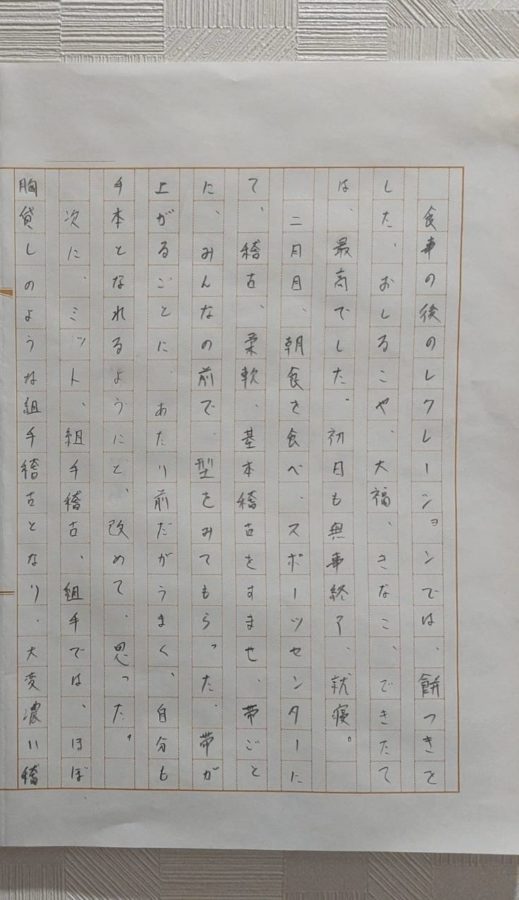 食事の後のレクレーションでは、餅つきを
した、おしるこや、大福、きなこ、できたて
は、最高でした。初日も無事終了、就寝。
二月目、朝食を食べ、スポーツセンターに
て、稽古、柔軟、基本稽古をすませ、帯ごと
に、みんなの前で、型をみてもらった、帯が
上がるごとに、あたり前だがうまく、自分も
手本となれるようにと、改めて、思った。
次に、ミット、組手稽古、組手では、ほぼ
胸貸しのような組手稽古となり、大変濃い稽